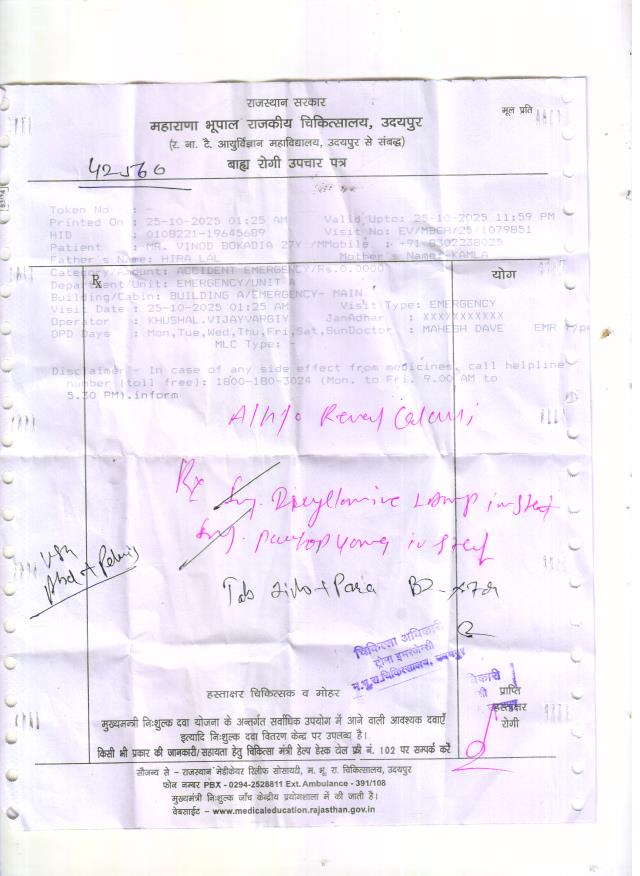 राजस्थान सरकार
मूल प्रति
महाराणा भूपाल राजकीय चिकित्सालय, उदयपुर
(र. ना. टै. आयुर्विज्ञान महाविद्यालय, उदयपुर से संबद्ध)
बाह्य रोगी उपचार पत्र
42560
Token No : -
Printed On : 25-10-2025 01:25 AM Valid Upto: 25-10-2025 11:59 PM
HID : 0108221-19645689 Visit No: EV/MBGH/25/1079851
Patient : MR. VINOD BOKADIA 27Y /M Mobile : +91 8302238025
Father's Name: HIRA LAL Mother's Name: KAMLA
Category/Amount: ACCIDENT EMERGENCY/Rs.0.0000
Rx
योग
Department/Unit: EMERGENCY/UNIT A
Building/Cabin: BUILDING A/EMERGENCY- MAIN
Visit Date : 25-10-2025 01:25 AM Visit Type: EMERGENCY
Operator : KHUSHAL.VIJAYVARGIY JanAdhar : XXXXXXXXXXX
OPD Days : Mon,Tue,Wed,Thu,Fri,Sat,Sun Doctor : MAHESH DAVE EMR Type
MLC Type: -
Disclaimer - In case of any side effect from medicines, call helpline
number (toll free): 1800-180-3024 (Mon. to Fri. 9.00 AM to
5.30 PM).inform
A/H/o Renal Calculi
Rx
Inj. Dicyclomine 1 amp im stat
Inj. Pantop 40mg iv stat
Usg
Abd + Pelvis
Tab + Para BD
चिकित्सा अधिकारी
ट्रोमा इमरजेन्सी
म.भू.रा.चिकित्सालय, उदयपुर
हस्ताक्षर चिकित्सक व मोहर
प्राप्ति
हस्ताक्षर
रोगी
मुख्यमन्त्री निःशुल्क दवा योजना के अन्तर्गत सर्वाधिक उपयोग में आने वाली आवश्यक दवाएँ
इत्यादि निःशुल्क दवा वितरण केन्द्र पर उपलब्ध है।
किसी भी प्रकार की जानकारी/सहायता हेतु चिकित्सा मंत्री हेल्प डेस्क सेल फ्री नं. 102 पर सम्पर्क करें
सौजन्य से - राजस्थान मेडीकेयर रिलीफ सोसायटी, म. भू. रा. चिकित्सालय, उदयपुर
फोन नम्बर PBX - 0294-2528811 Ext. Ambulance - 391/108
मुख्यमंत्री निःशुल्क जाँच केंद्रीय प्रयोगशाला में की जाती है।
वेबसाईट - www.medicaleducation.rajasthan.gov.in